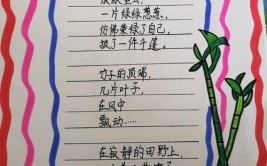 一片绿绿葱葱，
仿佛染绿了自己，
披了一件斗篷。
竹子的顶端，
几片叶子，
在风中
飘动……
在寂静的田野上，